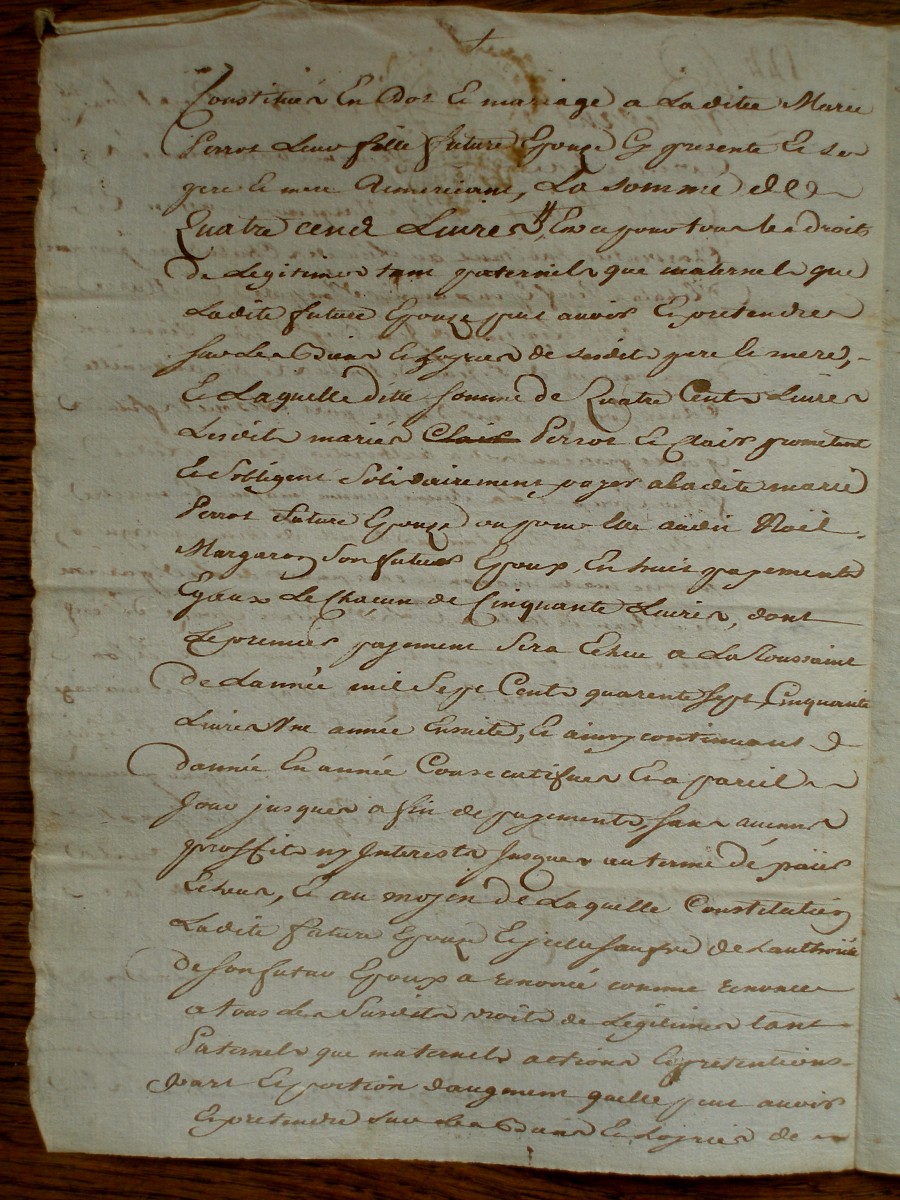 Constitués En dot Et mariage a Laditte Marie
Perrot Leur fille future Epouze Cy presente Et ses
pere Et mere Remerciant, La somme de
Quatre cend Livres Et ce pour tous les droits
de Legitimes tant paternels que maternels que
Ladite future Epouze peut avoir Et pretendre
sur Les Biens Et hoyries de sesdits pere Et mere,
Et Laquelle ditte somme de Quatre Cents Livres
Lesdits mariés Clair Perrot Et Clair promettent
Et s'obligent solidairement payer a ladite marie
Perrot future Epouze ou pour Elle audit Noël
Margaron son futur Epoux En huit payements
Egaux Le Chacun de Cinquante Livres, dont
Le premier payement sera Echeu a La Toussaint
de Lannée mil Sept Cent quarente sept, Cinquante
Livres Une année Ensuite, Et ainsy continuant
dannée En année Consecutifues Et a pareil
Jour jusques a fin de payements, sans aucuns
proffits ny Interests Jusques au terme de
Echeus, Et au moyen de Laquelle Constitution
Ladite future Epouze de Lauthorité
de son futur Epoux a renoncé comme renonce
a tous Les Susdits droits de Légitimes tant
Paternels que maternels actions Et pretentions
part Et portion daugment quelle peut avoir
Et pretendre sur Les Biens Et hoyries de